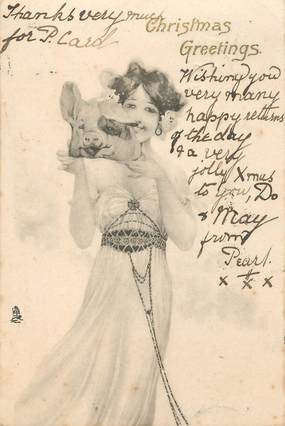 Thanks very much
for P. Card
Christmas
Greetings.
Wishing you
very many
happy returns
of the day
& a very
jolly Xmas
to you, Do
& May
from
Pearl.
x x x